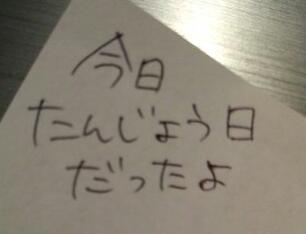 今日
たんじょう日
だったよ